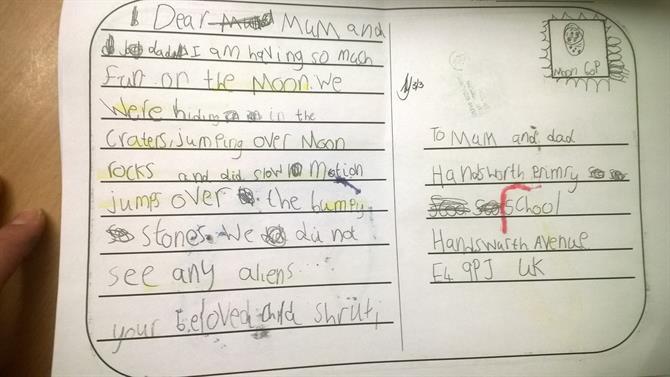 Dear Mum and
dad I am having so much
fun on the Moon. We
Were hiding in the
Craters, jumping over Moon
rocks and did slow Motion
jumps over the bumpy
stones. We did not
see any aliens....
your beloved child Shruti
Moon 60P
To Mum and dad
Handsworth Primry
School
Handswarth Avenue
E4 9PJ UK